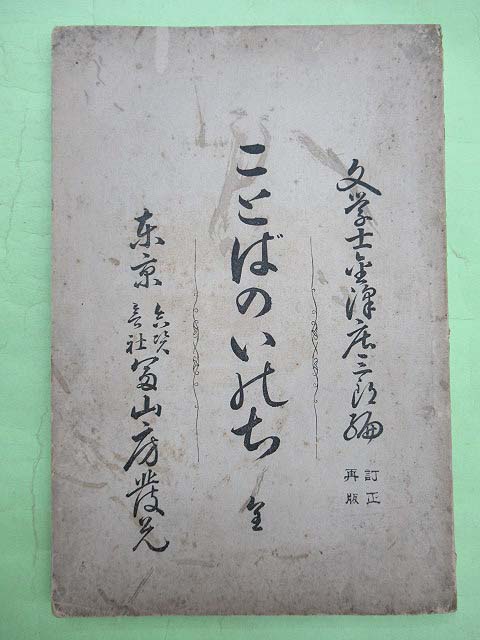 文学士金澤庄三郎編
訂正
再版
ことばのいのち 全
東京 合資會社 冨山房發兌